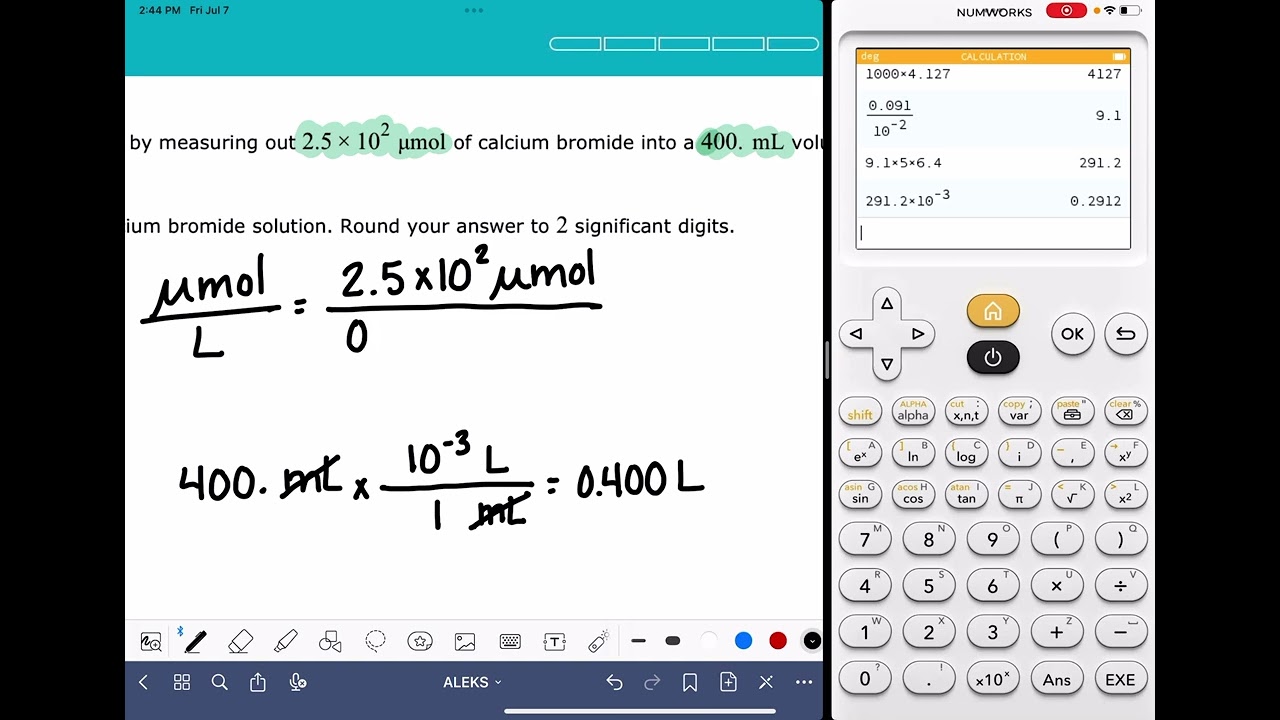 2:44 PM Fri Jul 7
NUMWORKS
by measuring out 2.5 × 10² μmol of calcium bromide into a 400. mL volu
ium bromide solution. Round your answer to 2 significant digits.
μmol
L
=
2.5 x10² μmol
0
400. mL x
10⁻³ L
1 mL
= 0.400 L
ALEKS
deg CALCULATION
1000×4.127 4127
0.091
10⁻²
9.1
9.1×5×6.4 291.2
291.2×10⁻³ 0.2912
OK
shift
ALPHA
alpha
cut :
x,n,t
copy ;
var
paste "
clear %
[ A
eˣ
] B
ln
{ C
log
} D
i
_ E
,
→ F
xʸ
asin G
sin
acos H
cos
atan I
tan
= J
π
< K
√
> L
x²
7 M
8 N
9 O
( P
) Q
4 R
5 S
6 T
× U
÷ V
1 W
2 X
3 Y
+ Z
−
0 ?
. !
×10ˣ
Ans
EXE